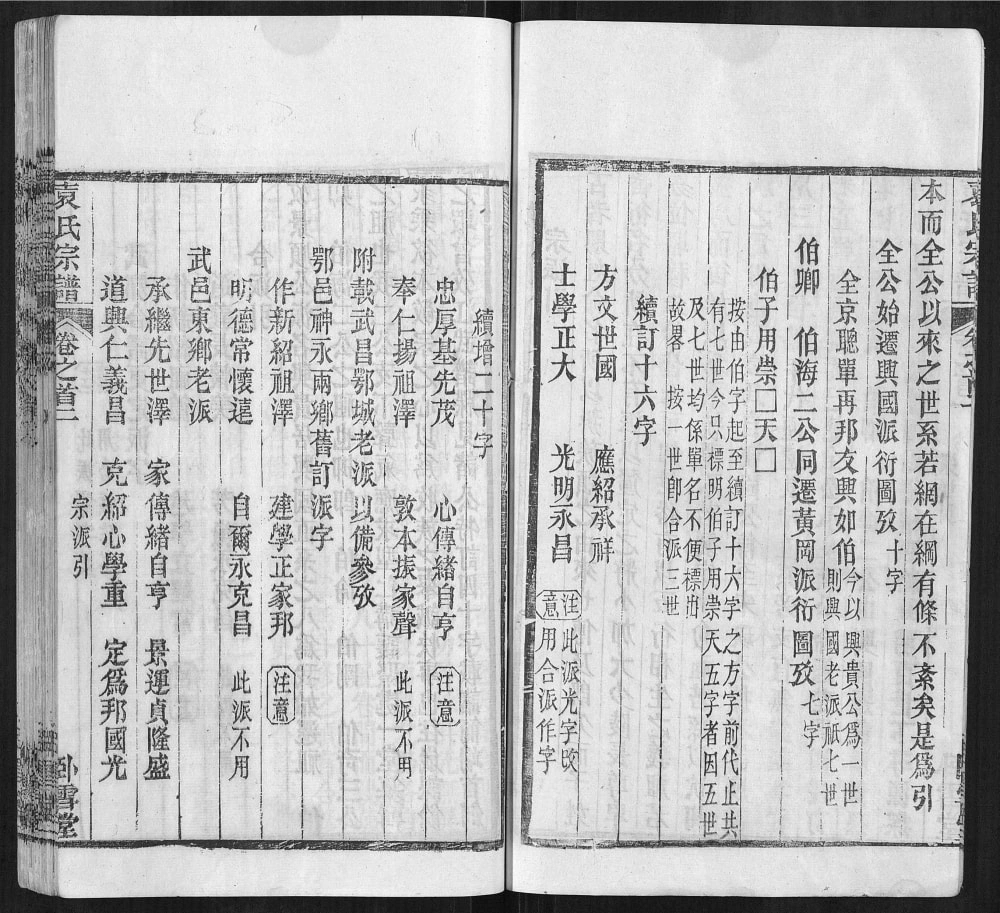 本而全公以來之世系若網在綱有條不紊矣是爲引
全公始遷興國派衍圖攷 十字
全京聰單再邦友興如伯 今以興貴公爲一世
則與國老派祇七世
伯卿 伯海二公同遷黃岡派衍圖攷 七字
伯子用崇□天□
按由伯字起至續訂十六字之方字前代止共
有七世今只標明伯子用崇天五字者因五世
及七世均係單名不便標出
故畧 按一世卽合派三世
續訂十六字
方交世國 應紹承祥
士學正大 光明永昌 注意 此派光字改
用合派作字
續增二十字
忠厚基先茂 心傳緒自亨 注意
奉仁揚祖澤 敦本振家聲 此派不用
附載武昌鄂城老派以備參攷
鄂邑神永兩鄉舊訂派字
作新紹祖澤 建學正家邦 注意
明德常懷遠 自爾永克昌 此派不用
武邑東鄉老派
承繼先世澤 家傳緒自亨 景運貞隆盛
道興仁義昌 克紹心學重 定爲邦國光
宗派引
袁氏宗譜 卷之首二 臥雪堂